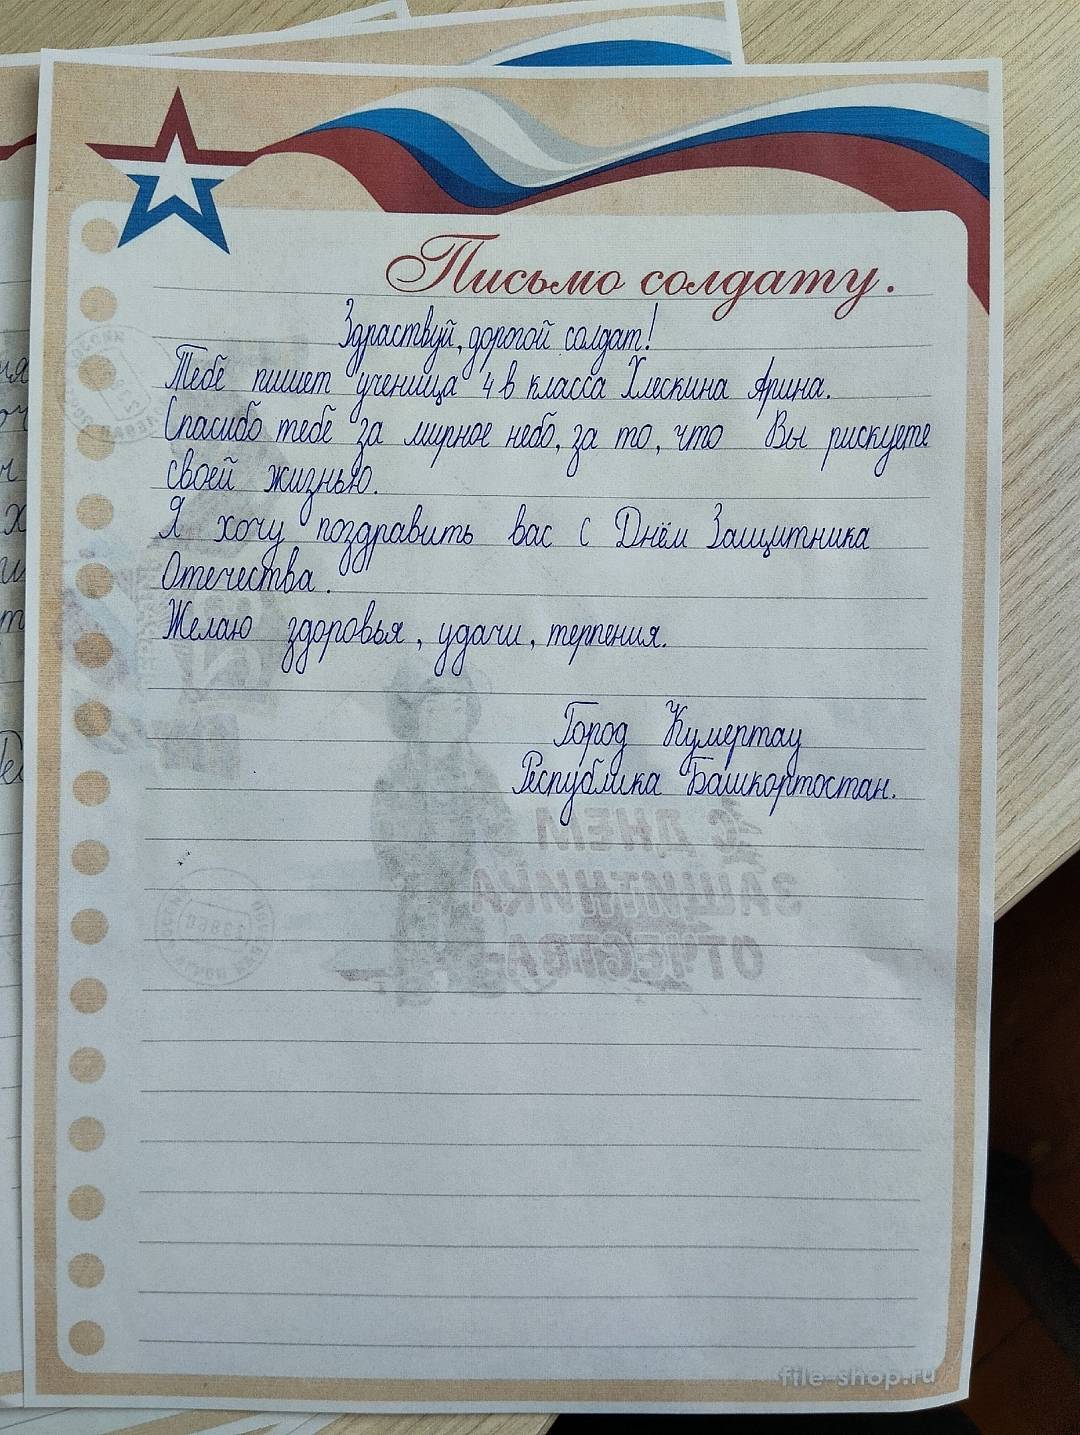 Письмо солдату.
Здраствуй, дорогой солдат!
Тебе пишет ученица 4 в класса Хлескина Арина.
Спасибо тебе за мирное небо, за то, что Вы рискуете
своей жизнью.
Я хочу поздравить вас с Днём Защитника
Отечества.
Желаю здоровья, удачи, терпения.
Город Кумертау
Республика Башкортостан.
С ДНЕМ
ЗАЩИТНИКА
ОТЧЕСТВА
file-shop.ru